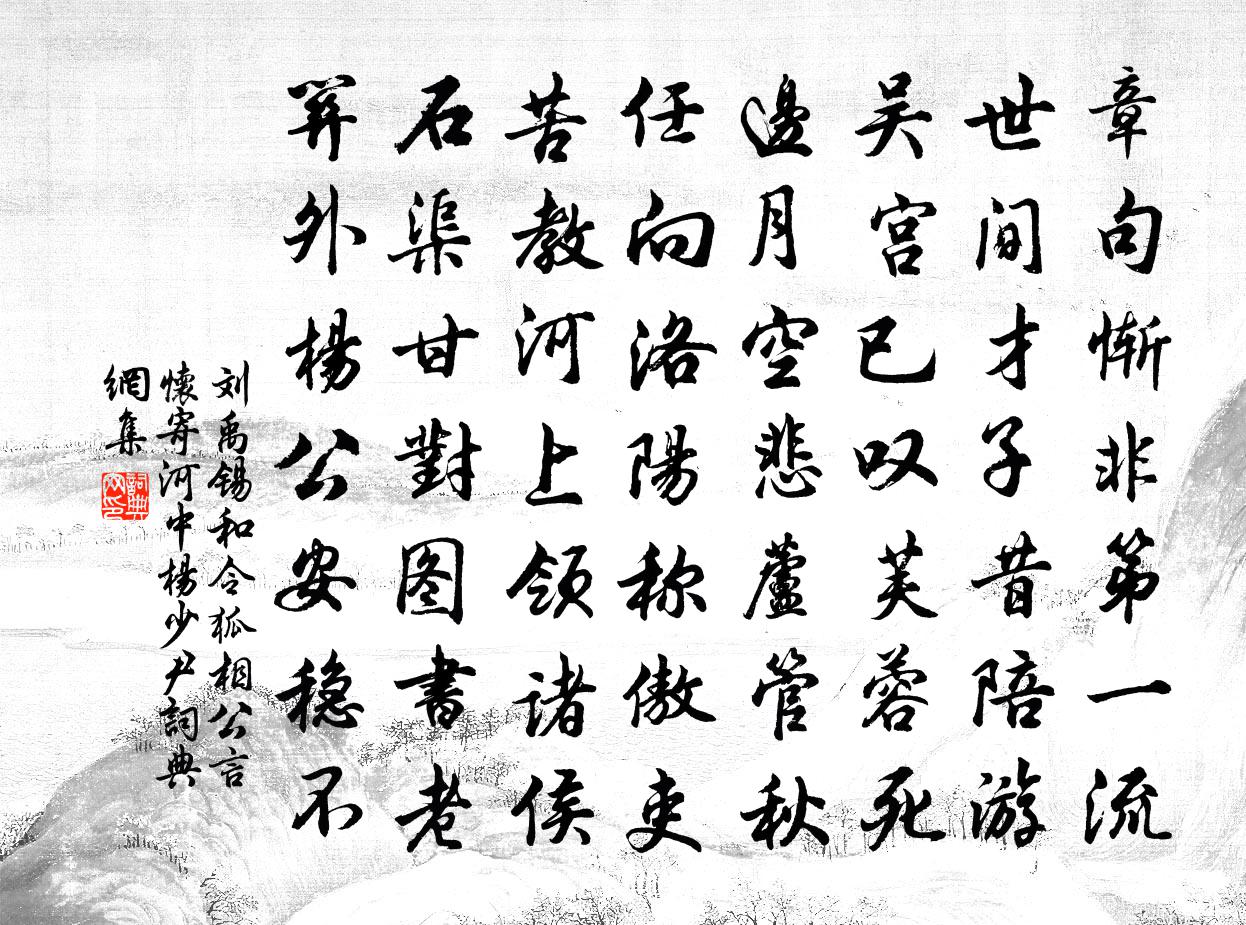 章句惭非第一流
世间才子昔陪游
吴宫已叹芙蓉死
邊月空悲蘆管秋
任向洛陽称傲吏
苦教河上领诸侯
石渠甘對图書老
關外楊公安穏不
刘禹锡和令狐相公言
懷寄河中楊少尹詞典
網集
詞典